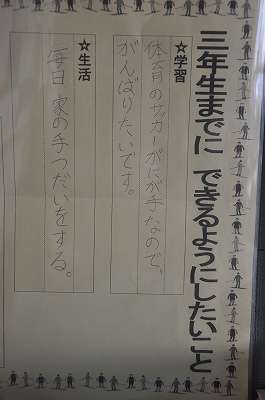 三年生までに できるようにしたいこと
☆学習
体育のサッカーがにが手なので、
がんばりたいです。
☆生活
毎日 家の手つだいをする。